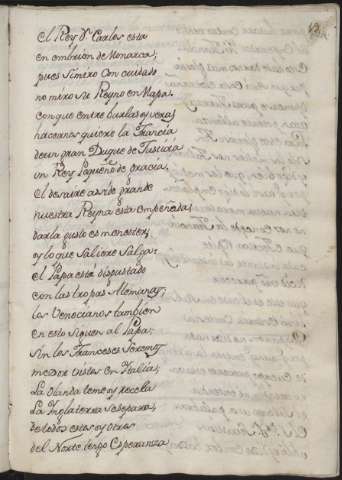 El Rey D.ⁿ Carlos esta
en embrion de Monarca,
pues si miro con cuidado
no miro su Reyno en Mapa.
Con que entre burlas, y veras
hacernos quiere la Francia
de un gran Duque de Justicia
un Rey Pequeño de gracia.
El desaire ha sido grande
nuestra Reyna esta empeñada;
darla gusto es menester,
y lo que saliere salga.
El Papa está disgustado
con las tropas Alemanas,
los Venecianos tambien
en esto siguen al Papa.
Sin los Franceses seremos
medio vistos en Italia;
La Olanda teme, y recela
La Inglaterra se separa,
de todos estos, y otros
del Norte tengo Esperanza